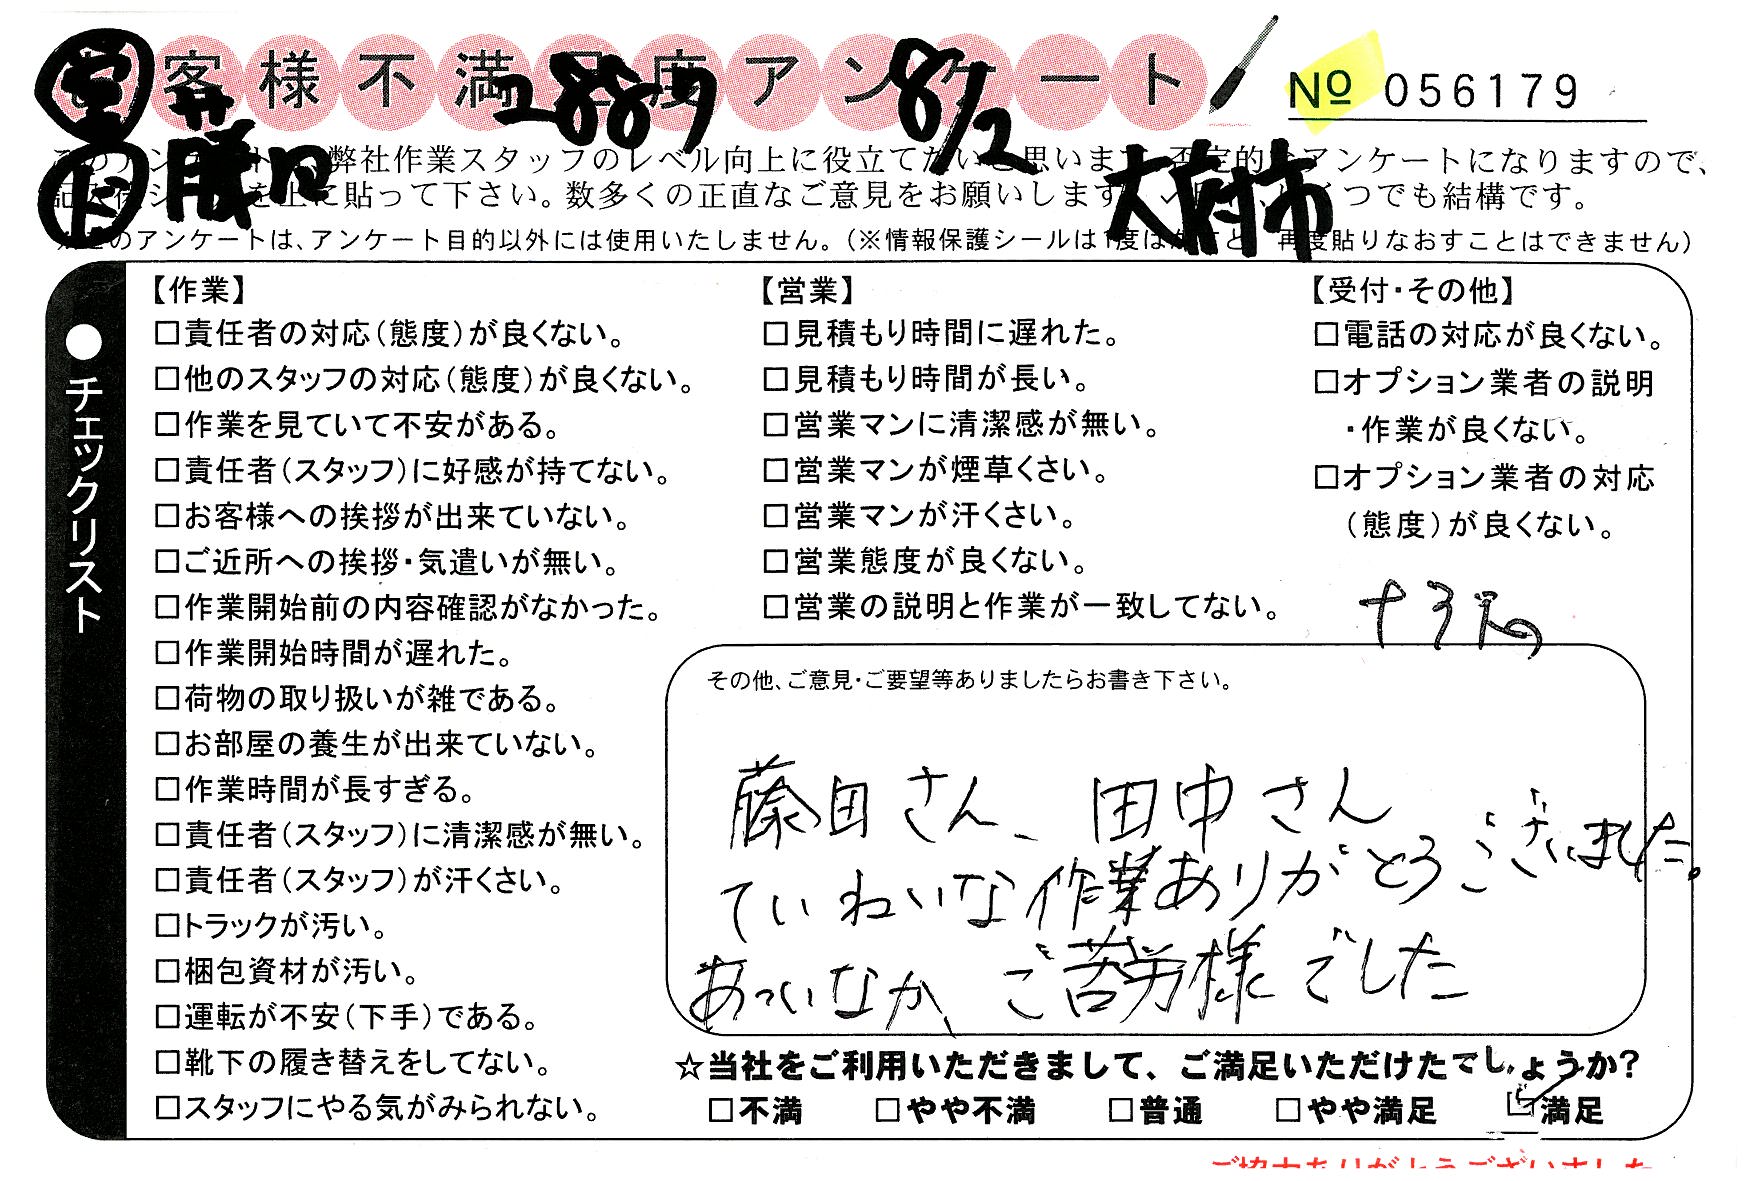 お客様不満足度アンケート
2887
8/2
No 056179
勝口
大府市
このアンケートは、弊社作業スタッフのレベル向上に役立てたいと思います。否定的なアンケートになりますので、
記入後シールを上に貼って下さい。数多くの正直なご意見をお願いします。
いくつでも結構です。
※このアンケートは、アンケート目的以外には使用いたしません。（※情報保護シールは1度はがすと、再度貼りなおすことはできません）
●チェックリスト
【作業】
□責任者の対応（態度）が良くない。
□他のスタッフの対応（態度）が良くない。
□作業を見ていて不安がある。
□責任者（スタッフ）に好感が持てない。
□お客様への挨拶が出来ていない。
□ご近所への挨拶・気遣いが無い。
□作業開始前の内容確認がなかった。
□作業開始時間が遅れた。
□荷物の取り扱いが雑である。
□お部屋の養生が出来ていない。
□作業時間が長すぎる。
□責任者（スタッフ）に清潔感が無い。
□責任者（スタッフ）が汗くさい。
□トラックが汚い。
□梱包資材が汚い。
□運転が不安（下手）である。
□靴下の履き替えをしてない。
□スタッフにやる気がみられない。
【営業】
□見積もり時間に遅れた。
□見積もり時間が長い。
□営業マンに清潔感が無い。
□営業マンが煙草くさい。
□営業マンが汗くさい。
□営業態度が良くない。
□営業の説明と作業が一致してない。
【受付・その他】
□電話の対応が良くない。
□オプション業者の説明
・作業が良くない。
□オプション業者の対応
（態度）が良くない。
その他、ご意見・ご要望等ありましたらお書き下さい。
藤田さん、田中さん
ていねいな作業ありがとうございました。
あついなか、ご苦労様でした
☆当社をご利用いただきまして、ご満足いただけたでしょうか？
□不満 □やや不満 □普通 □やや満足 ☑満足
ご協力ありがとうございました